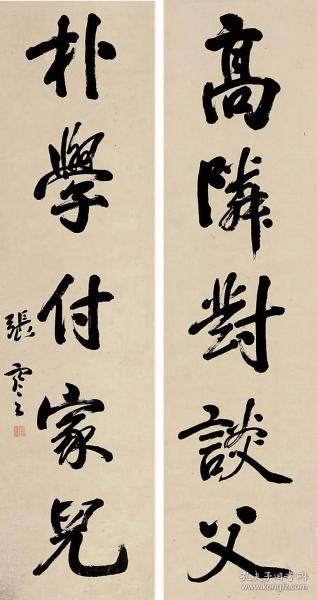 高隣對談父
朴學付家兒
張
孔夫子旧书网
kongfz.com